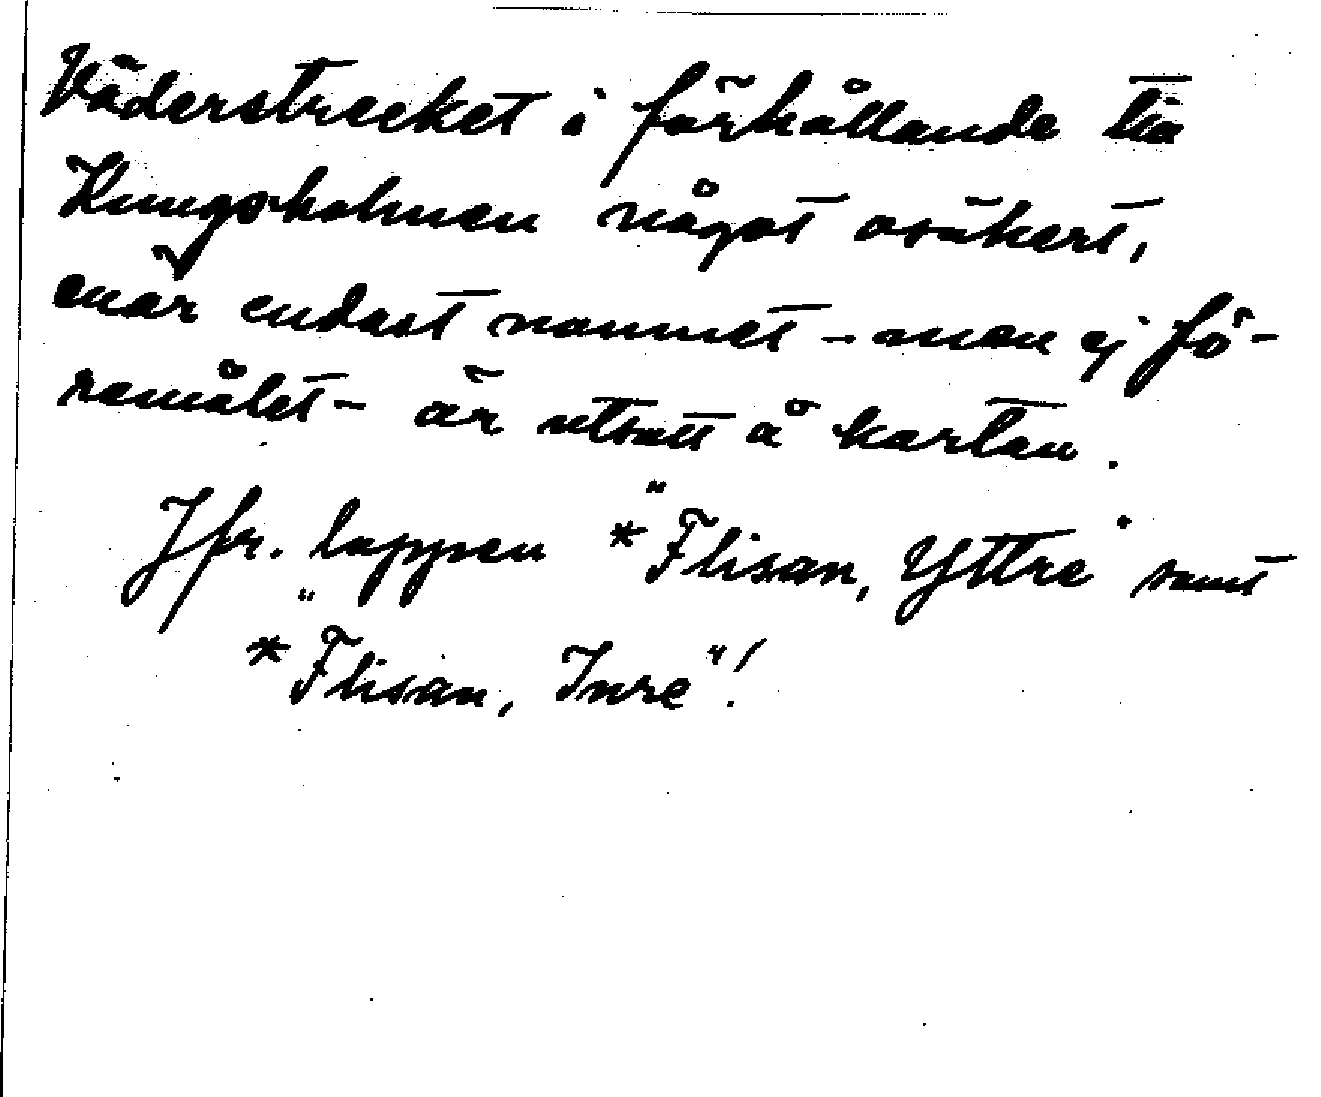 Väderstrecket i förhållande till
Kungsholmen något osäkert,
enär endast namnet - men ej fö-
remålet - är utsatt å kartan.
Jfr. lappen "*Flisan, Yttre" samt
"*Flisan, Inre"!